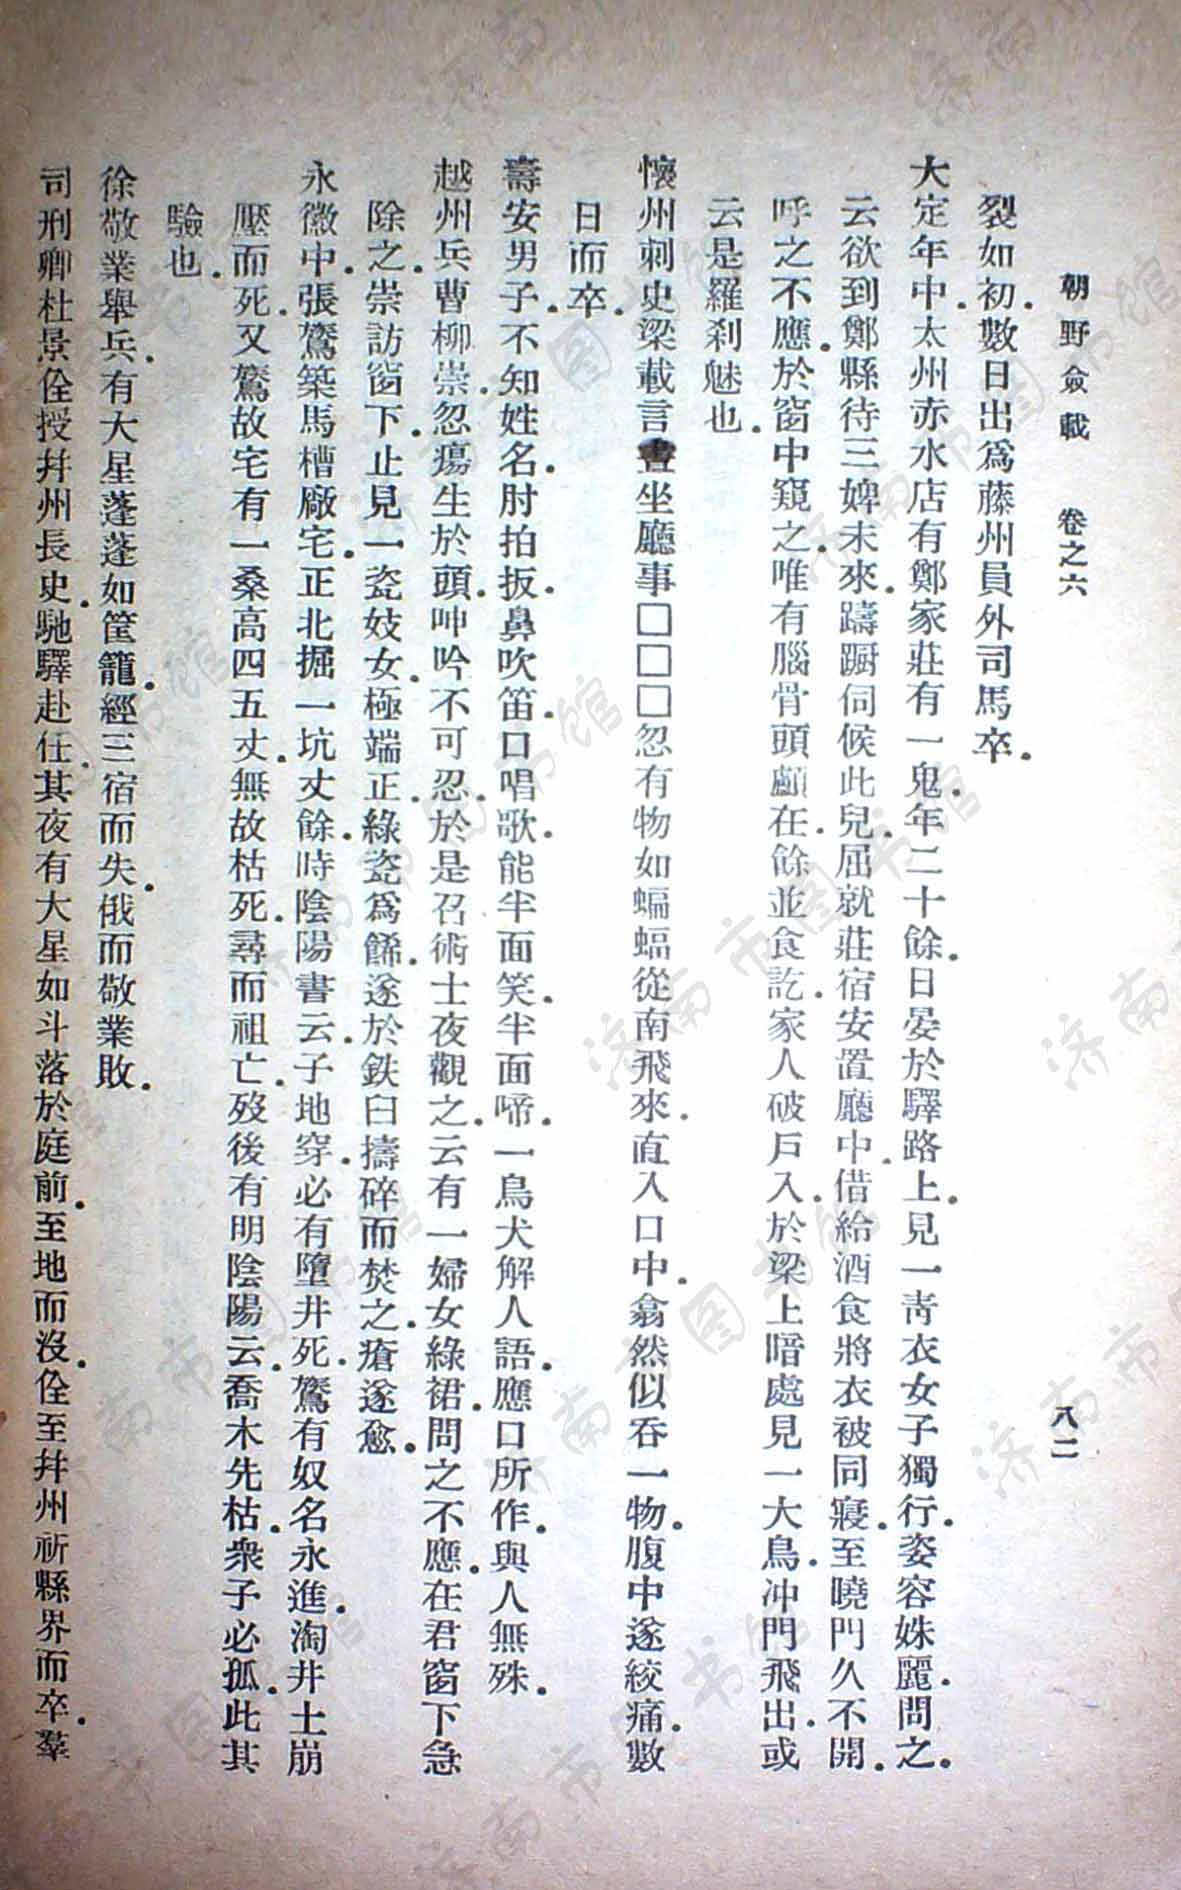 朝野僉載　卷之六　八二
裂如初.數日出爲藤州員外司馬卒.
大定年中.太州赤水店有鄭家莊有一鬼.年二十餘.日晏於驛路上.見一青衣女子獨行.姿容姝麗.問之.
云欲到鄭縣待三婢未來.躊蹰伺候此兒.屈就莊宿安置廳中.借給酒食將衣被同寢.至曉門久不開.
呼之不應.於窗中窺之.唯有腦骨頭顱在.餘並食訖.家人破戶入.於梁上暗處見一大鳥.沖門飛出.或
云是羅刹魅也.
懷州刺史梁載言晝坐廳事□□□忽有物如蝙蝠從南飛來.直入口中.翕然似吞一物.腹中遂絞痛.數
日而卒.
壽安男子.不知姓名.肘拍扳.鼻吹笛.口唱歌.能半面笑.半面啼.一鳥犬解人語.應口所作.與人無殊.
越州兵曹柳崇.忽瘍生於頭.呻吟不可忍.於是召術士夜觀之.云有一婦女綠裙.問之不應.在君窗下急
除之.崇訪窗下.止見一瓷妓女.極端正.綠瓷爲餙.遂於鉄臼擣碎而焚之.瘡遂愈.
永徽中.張鷟築馬槽廠宅.正北掘一坑丈餘.時陰陽書云.子地穿.必有墮井死.鷟有奴名永進.淘井土崩
壓而死.又鷟故宅有一桑高四五丈.無故枯死.尋而祖亡.歿後有明陰陽云.喬木先枯.衆子必孤.此其
驗也.
徐敬業舉兵.有大星蓬蓬如筐籠.經三宿而失.俄而敬業敗.
司刑卿杜景佺授幷州長史.馳驛赴任.其夜有大星如斗落於庭前.至地而沒.佺至幷州祈縣界而卒.羣
济南市图书馆